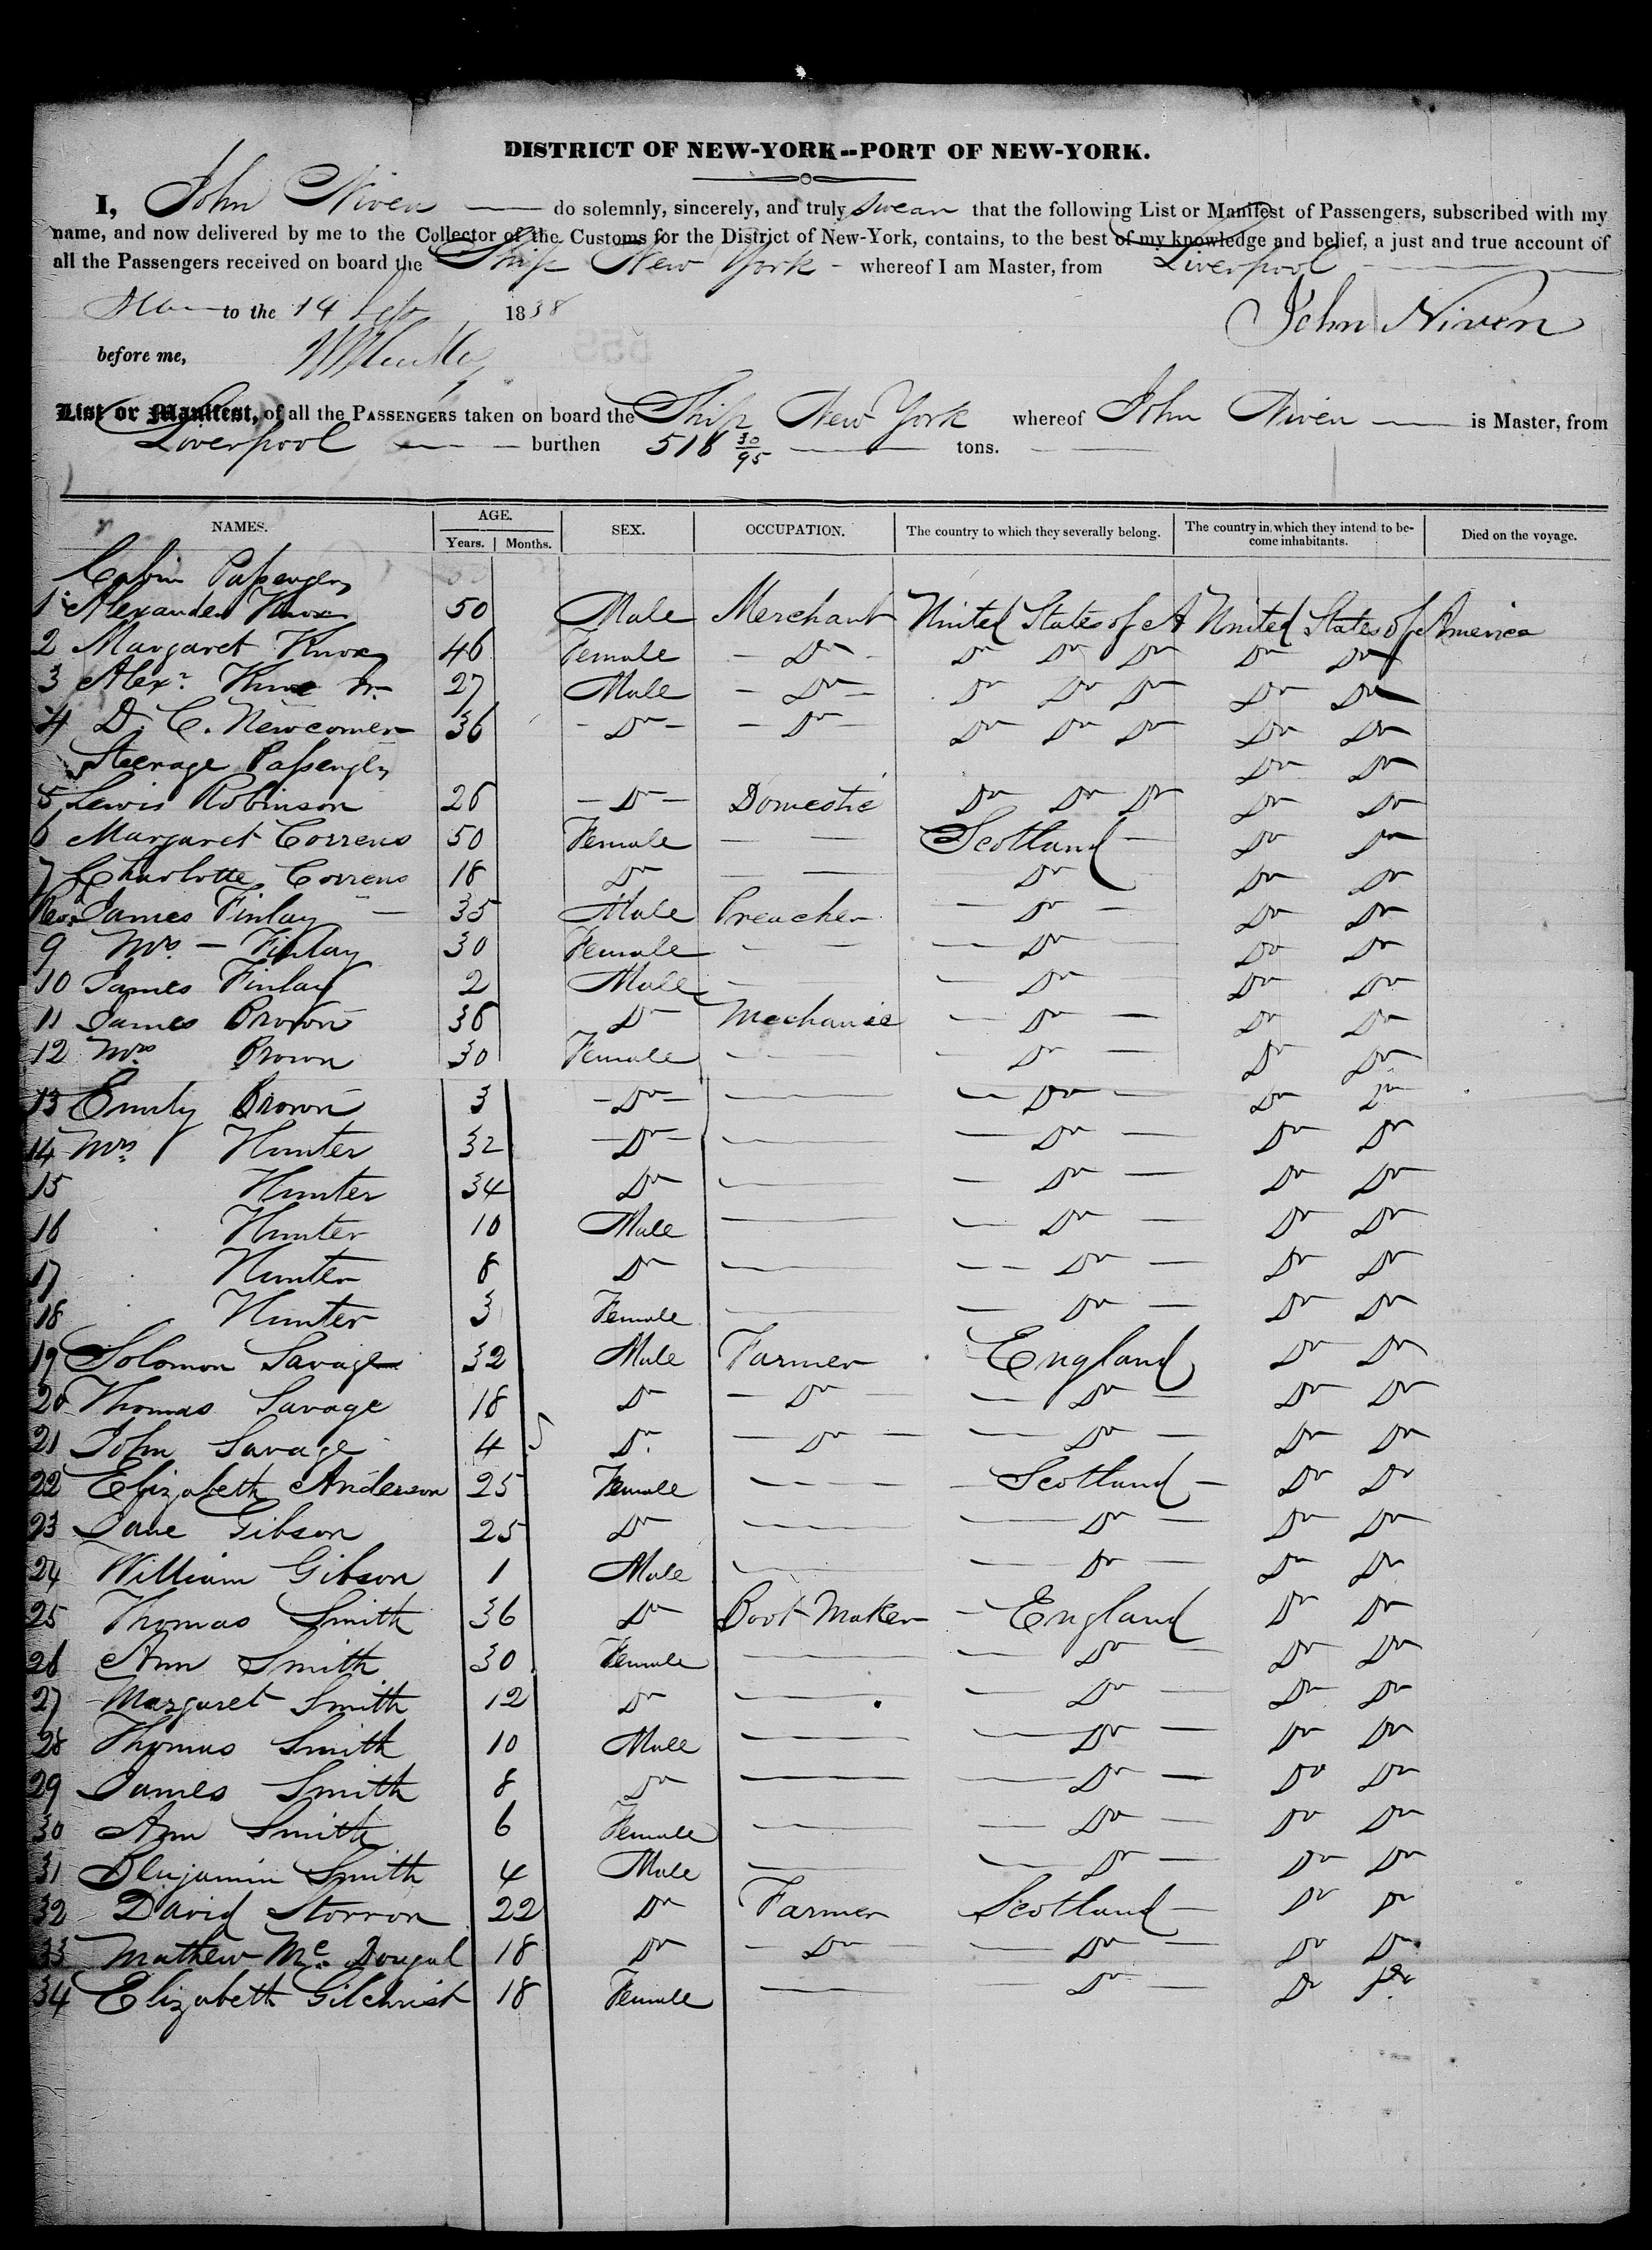 DISTRICT OF NEW-YORK--PORT OF NEW-YORK.
I, John Niven do solemnly, sincerely, and truly swear that the following List or Manifest of Passengers, subscribed with my
name, and now delivered by me to the Collector of the Customs for the District of New-York, contains, to the best of my knowledge and belief, a just and true account of
all the Passengers received on board the Ship New York whereof I am Master, from Liverpool
to the 14 Sep 1838
John Niven
before me,
List or Manifest, of all the PASSENGERS taken on board the Ship New York whereof John Niven is Master, from
Liverpool burthen 518 30/95 tons.
NAMES. AGE. Years. Months. SEX. OCCUPATION. The country to which they severally belong. The country in which they intend to become inhabitants. Died on the voyage.
Cabin Passengers
1 Alexander Knox 50 Male Merchant United States of A United States of America
2 Margaret Knox 46 Female Do Do Do Do Do Do
3 Alexr. Knox Jr. 27 Male Do Do Do Do Do Do
4 D. C. Newcomer 36 Do Do Do Do Do Do Do
Steerage Passengers Do Do
5 Lewis Robinson 26 Do Domestic Do Do Do Do Do
6 Margaret Correns 50 Female Scotland Do Do
7 Charlotte Correns 18 Do Do Do Do
Rev. James Finlay 35 Male Preacher Do Do Do
9 Mrs. Finlay 30 Female Do Do Do
10 James Finlay 2 Male Do Do Do
11 James Brown 36 Do Mechanic Do Do Do
12 Mrs. Brown 30 Female Do Do Do
13 Emily Brown 3 Do Do Do Do
14 Mrs. Hunter 32 Do Do Do Do
15 Hunter 34 Do Do Do Do
16 Hunter 10 Male Do Do Do
17 Hunter 8 Do Do Do Do
18 Hunter 3 Female Do Do Do
19 Solomon Savage 32 Male Farmer England Do Do
20 Thomas Savage 18 Do Do Do Do Do
21 John Savage 4 5 Do Do Do Do Do
22 Elizabeth Anderson 25 Female Scotland Do Do
23 Jane Gibson 25 Do Do Do Do
24 William Gibson 1 Male Do Do Do
25 Thomas Smith 36 Do Boot Maker England Do Do
26 Ann Smith 30 Female Do Do Do
27 Margaret Smith 12 Do Do Do Do
28 Thomas Smith 10 Male Do Do Do
29 James Smith 8 Do Do Do Do
30 Ann Smith 6 Female Do Do Do
31 Benjamin Smith 4 Male Do Do Do
32 David Storron 22 Do Farmer Scotland Do Do
33 Mathew Mc. Dougal 18 Do Do Do Do Do
34 Elizabeth Gilchrist 18 Female Do Do Do